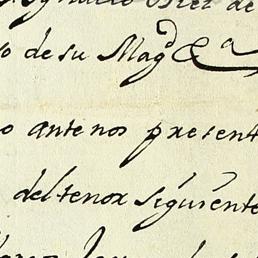 Ygnacio Diez de
o de su Magd &a
o ante nos present
del tenor siguiente